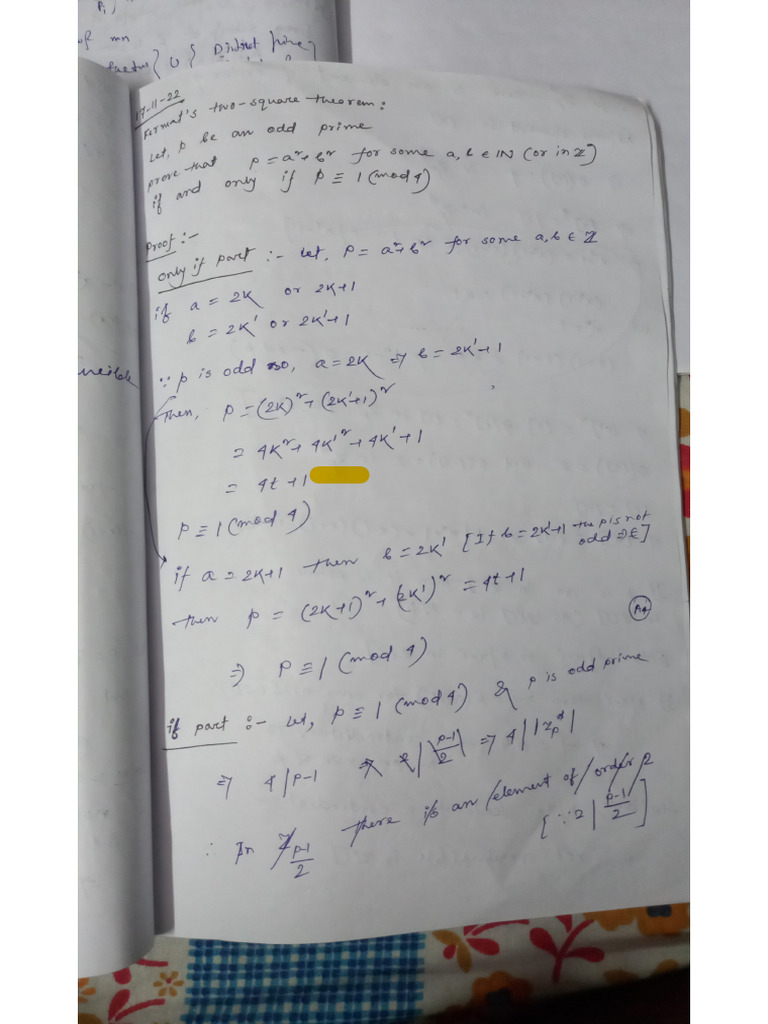 of mn
17-11-22
Fermat's two-square theorem:
Let, p be an odd prime
prove that p = a² + b² for some a, b ∈ ℕ (or in ℤ)
if and only if p ≡ 1 (mod 4)
Proof :-
only if part :- Let, p = a² + b² for some a, b ∈ ℤ
if a = 2k or 2k+1
b = 2k' or 2k'+1
∵ p is odd so, a = 2k ⇒ b = 2k'+1
Then, p = (2k)² + (2k'+1)²
= 4k² + 4k'² + 4k' + 1
= 4t + 1
p ≡ 1 (mod 4)
if a = 2k+1 then b = 2k' [If b = 2k'+1 the p is not
odd ⇒⇐]
then p = (2k+1)² + (2k')² = 4t+1
⇒ p ≡ 1 (mod 4)
if part :- Let, p ≡ 1 (mod 4) & p is odd prime
⇒ 4 | p-1 ⇒ 2 | (p-1)/2 ⇒ 4 | |ℤp*|
∴ In ℤ(p-1)/2 there is an element of order 2
[∵ 2 | (p-1)/2]